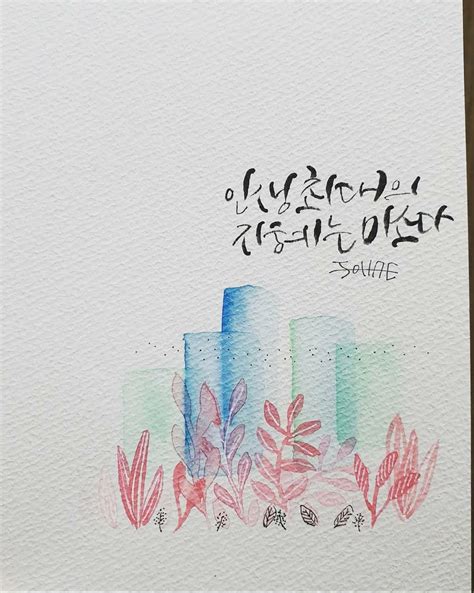 인생 최대의
지혜는 미소다